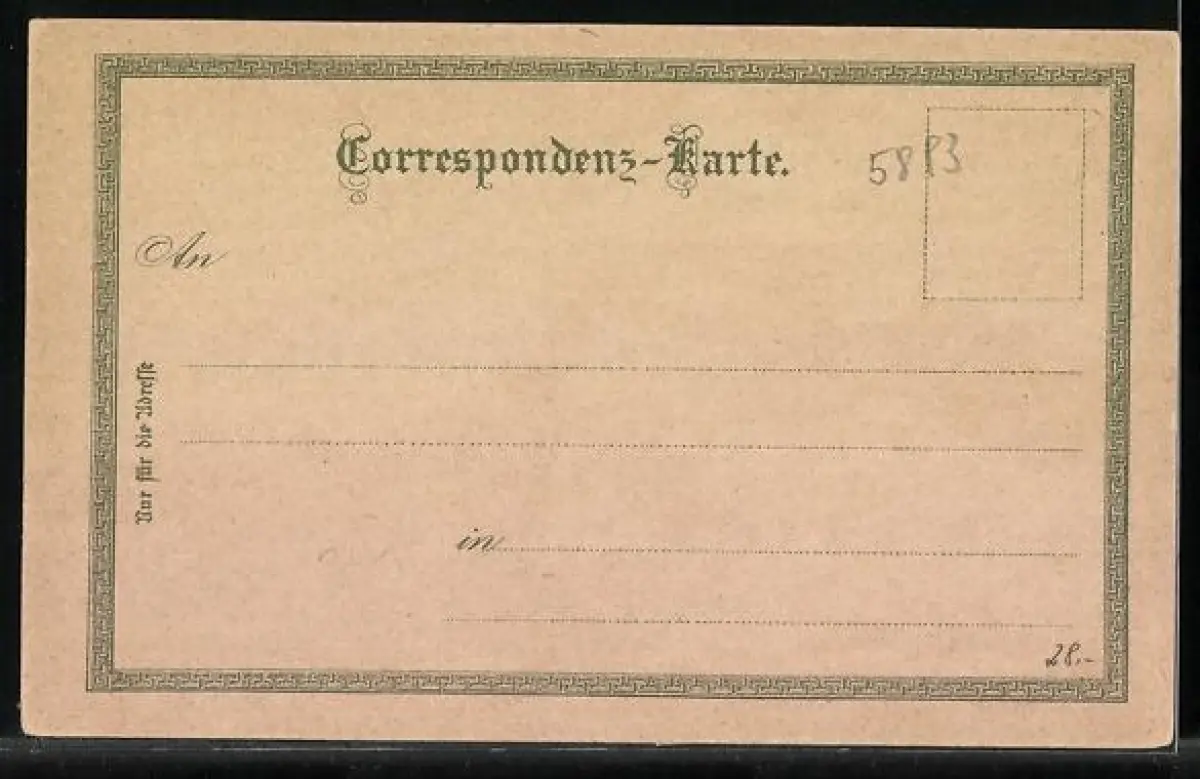 Correspondenz-Karte.
An
Nur für die Adresse
in
28.-